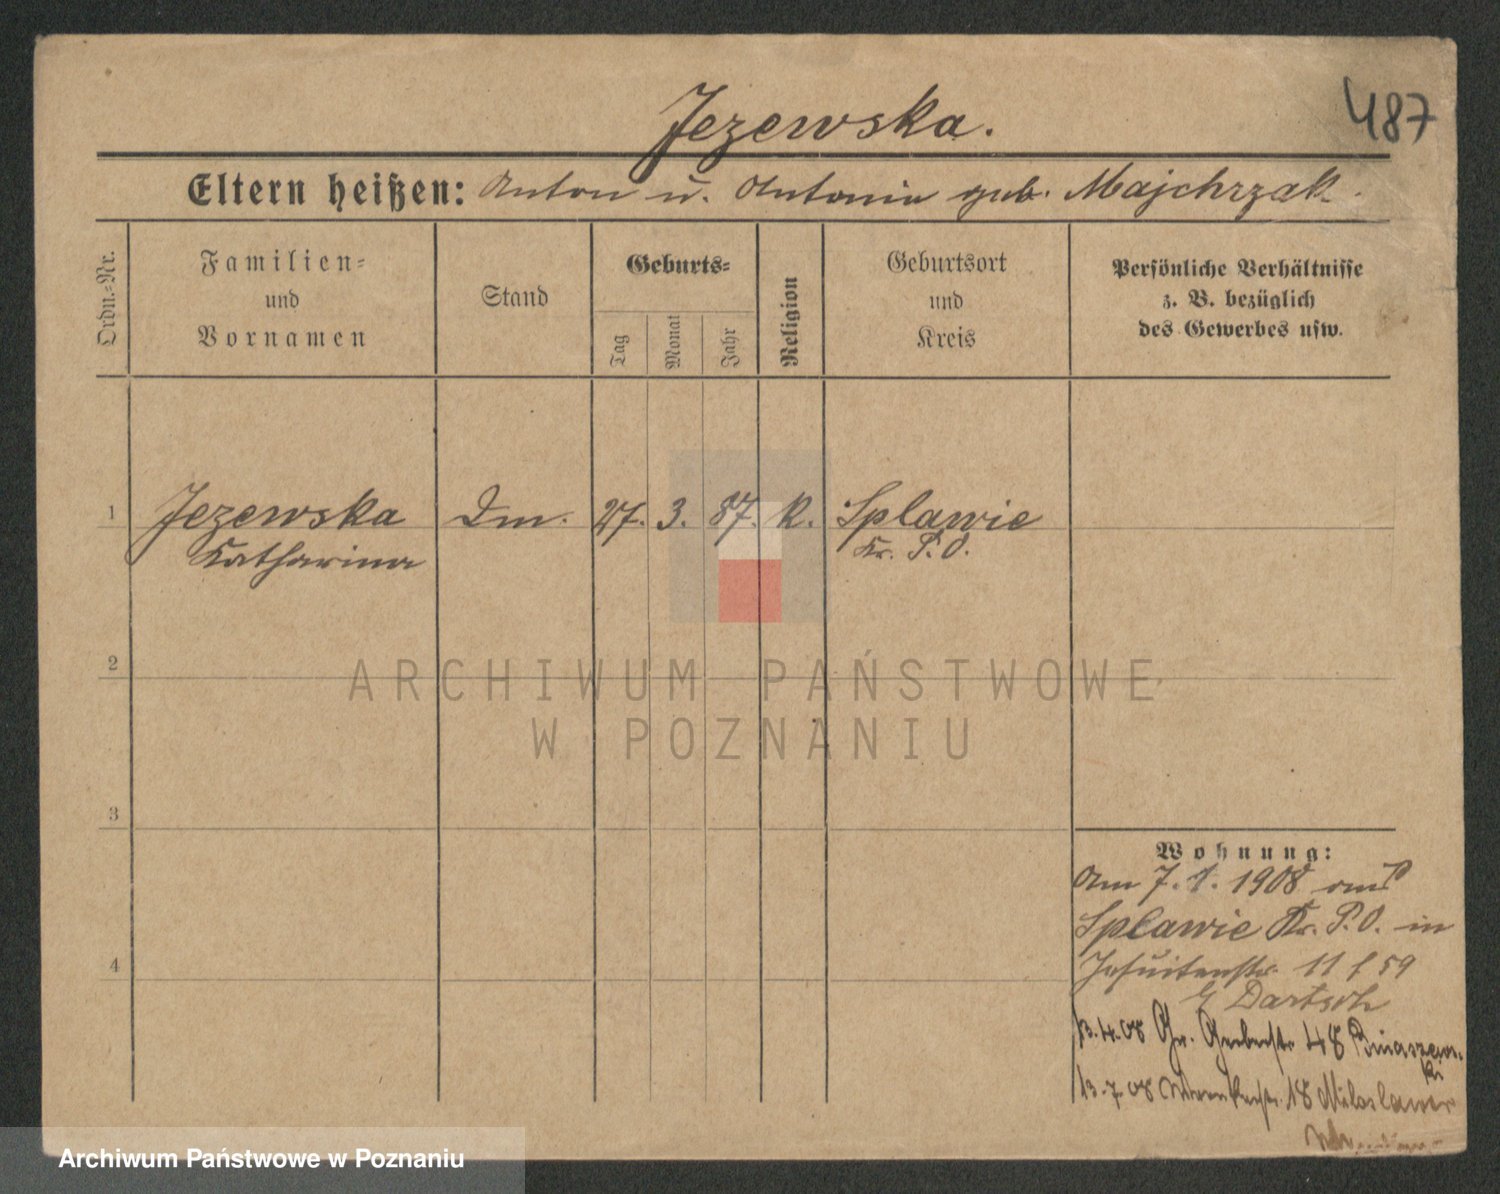 487
Jezewska.
Eltern heißen: Anton u. Antonie geb. Majchrzak.
Ordn.=Nr.
Familien=
und
Vornamen
Stand
Geburts=
Tag
Monat
Jahr
Religion
Geburtsort
und
Kreis
Persönliche Verhältnisse
z. B. bezüglich
des Gewerbes usw.
1 Jezewska Dm. 27. 3. 87. k. Splawie
Katharina Kr. P. O.
2
3
4
Wohnung:
Am 7. 1. 1908 aus
Splawie Kr. P. O. in
Jesuitenstr. 11 f 59
b/ Dartsch
13.4.08 Gr. Gerberstr. 48
13.7.08 18 Miloslawer
ARCHIWUM PAŃSTWOWE
W POZNANIU
Archiwum Państwowe w Poznaniu